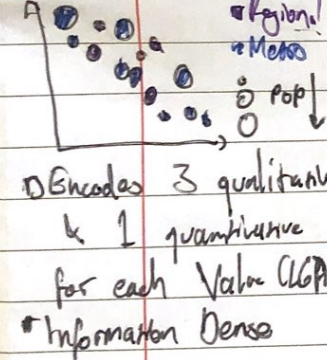 Regional
Metro
Pop
Encodes 3 qualitativ
& 1 quantitative
for each Value (LGA
Information Dense